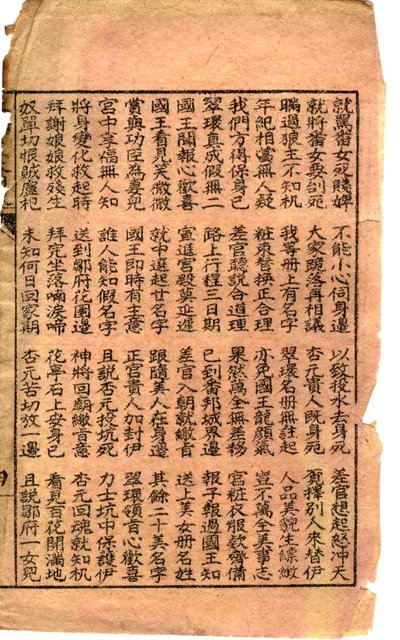 就罵番女死賤婢 不能小心伺身邊 以致投水去身死 差官想起怒冲天
就將番女要刣死 大家跪落再相議 杏元貴人既身死 覔擇別人來替伊
瞞過狼主不知机 我等册上有名字 翠環名册無註起 人品美貌生縹緻
年紀相當無人疑 粧束替換正合理 亦免國王龍顏氣 豈不萬全美事志
我們方得保身已 差官聽說合道理 果然萬全無差移 宮粧衣服欸齊備
翠環真成假無二 路上行程三日期 已到番邦城界邊 報子報過國王知
國王聞報心歡喜 宣進宮殿莫延遲 差官入朝就繳旨 送上美女册名姓
國王看見笑微微 就中選起廿名字 跟隨美人在身邊 其餘二十美名字
賞與功臣為妻兒 國王即時有主意 正宮貴人加封伊 翠環領旨心歡喜
宮中享福無人知 誰人能知假名字 且說杏元投坑死 力士坑中保護伊
將身變化救起時 送到鄒府花園邊 神將回廟繳旨意 杏元回魂就知机
拜謝娘娘救殘生 拜完坐落喃淚啼 花亭石上安身已 看見百花開滿地
奴單切恨賊盧杞 未知何日回家期 杏元苦切放一邊 且說鄒府一女兒